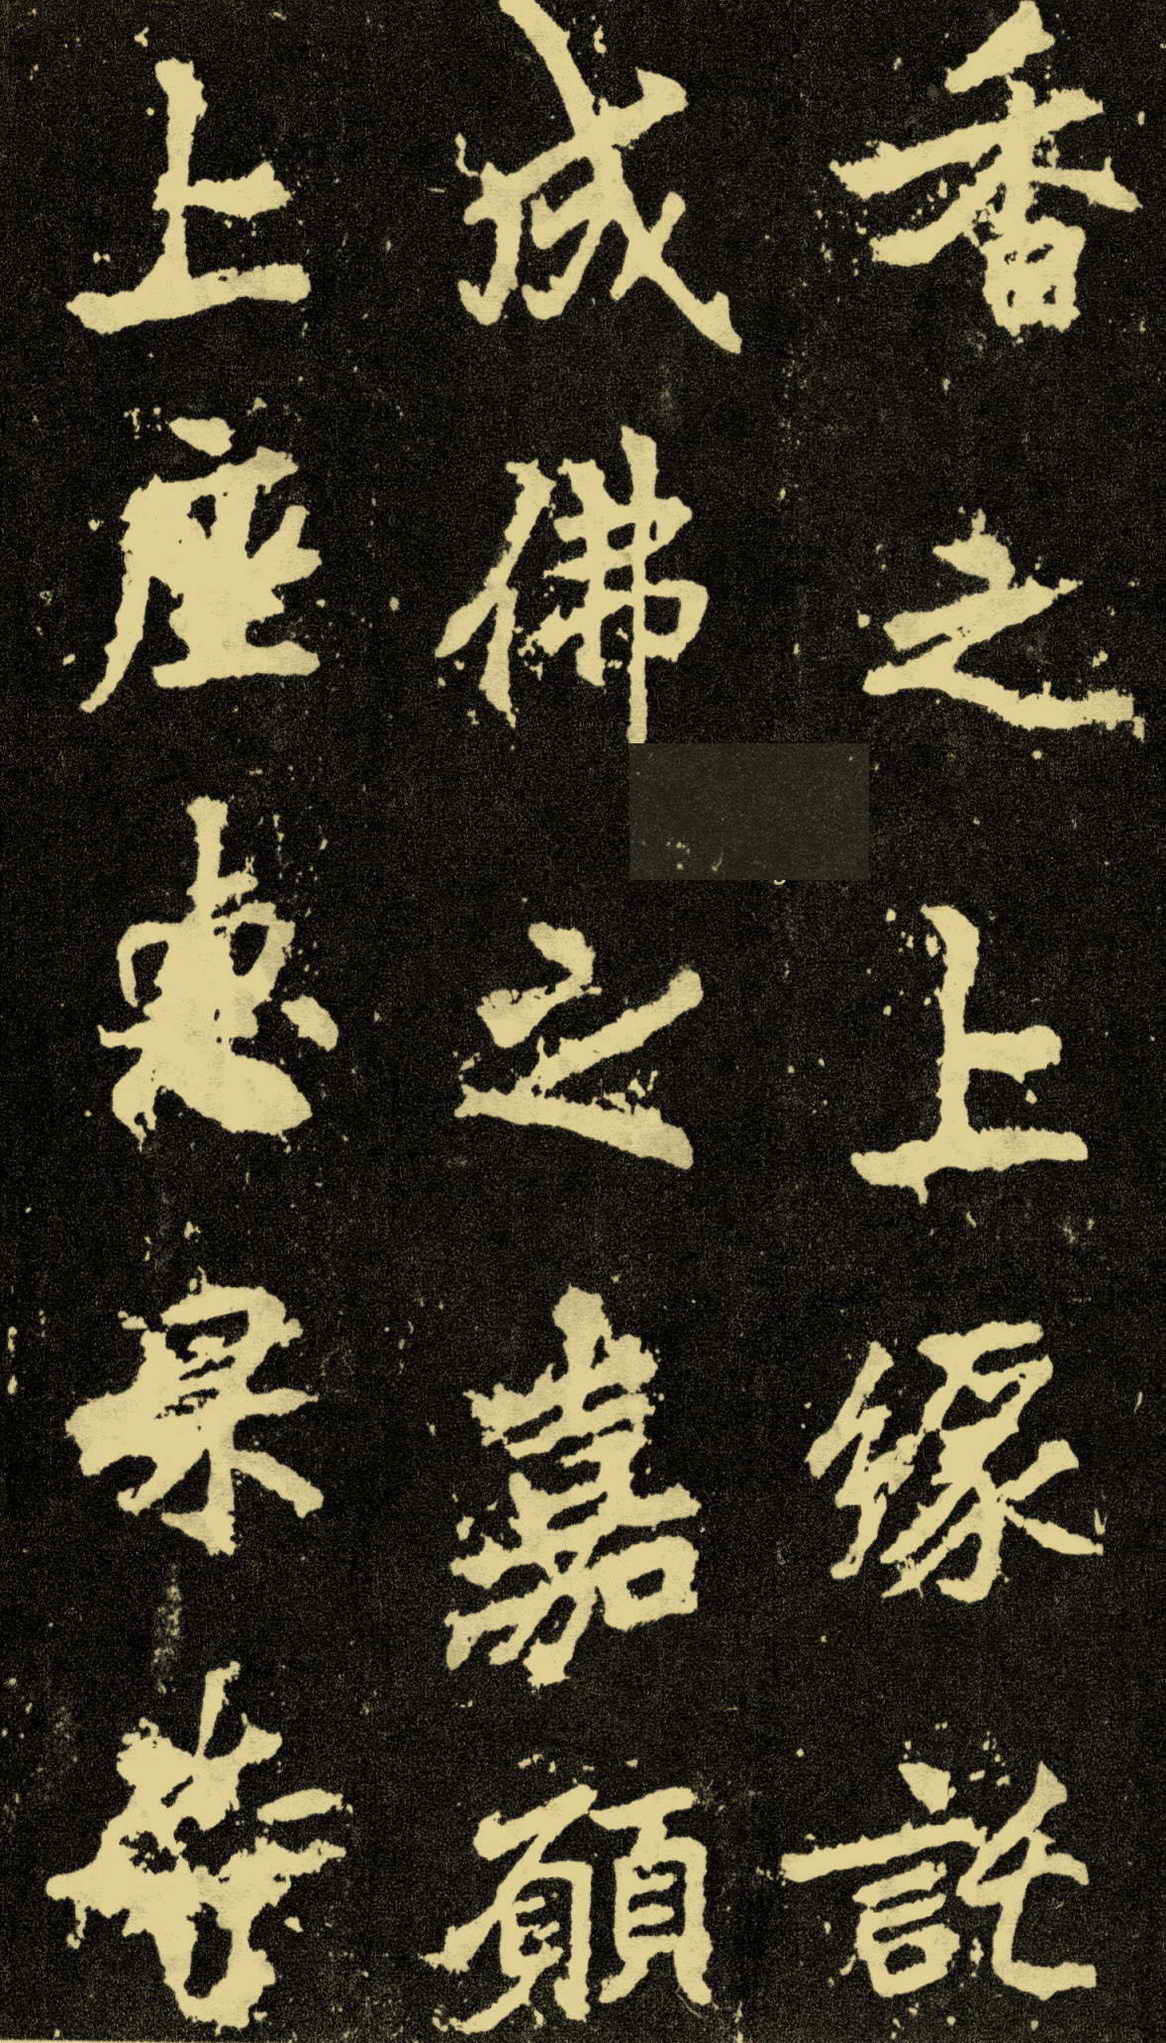 香之上緣託
成佛之嘉願
上座惠杲